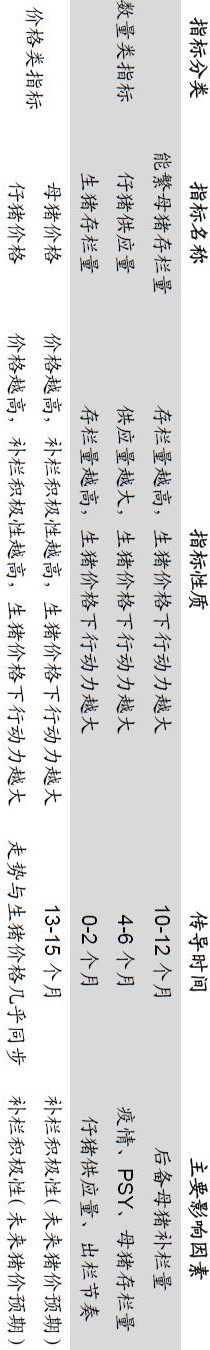 指标分类 指标名称 指标性质 传导时间 主要影响因素
能繁母猪存栏量 存栏量越高，生猪价格下行动力越大 10-12 个月 后备母猪补栏量
数量类指标 仔猪供应量 供应量越大，生猪价格下行动力越大 4-6 个月 疫情、PSY、母猪存栏量
生猪存栏量 存栏量越高，生猪价格下行动力越大 0-2 个月 仔猪供应量、出栏节奏
价格类指标 母猪价格 价格越高，补栏积极性越高，生猪价格下行动力越大 13-15 个月 补栏积极性(未来猪价预期)
仔猪价格 价格越高，补栏积极性越高，生猪价格下行动力越大 走势与生猪价格几乎同步 补栏积极性(未来猪价预期)